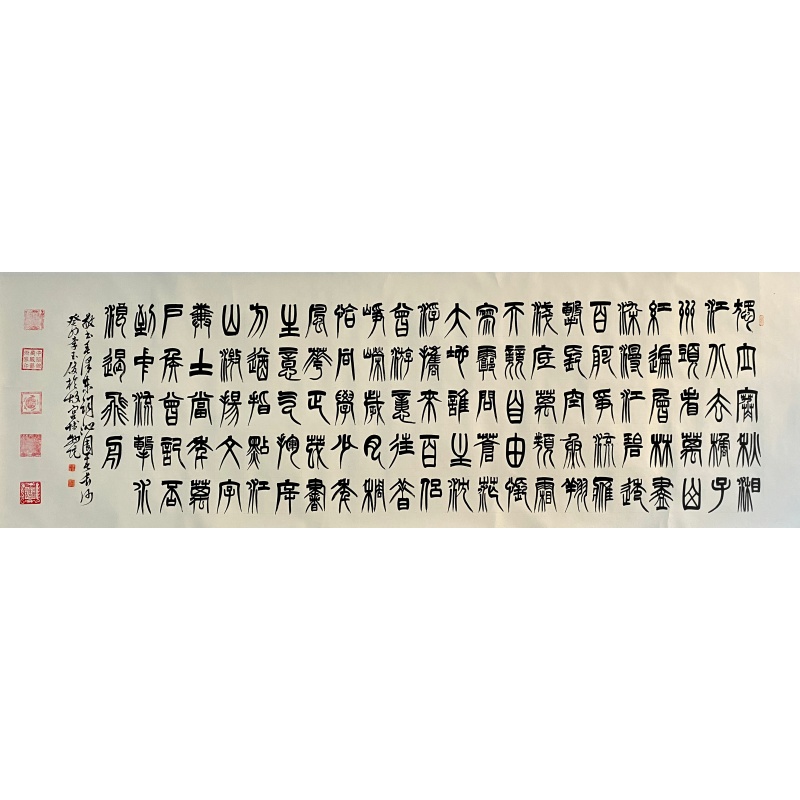 獨立寒秋湘
江北去橘子
州頭看萬山
紅遍層林盡
染漫江碧透
百舸爭流鷹
擊長空魚翔
淺底萬類霜
天競自由悵
寥廓問蒼茫
大地誰主沈
浮攜來百侶
曾游憶往昔
崢嶸歲月稠
恰同學少年
風華正茂書
生意氣揮斥
方遒指點江
山激揚文字
糞土當年萬
戶侯曾記否
到中流擊水
浪遏飛舟
敬書毛澤東詞沁園春長沙
癸卯年於故宮博物院